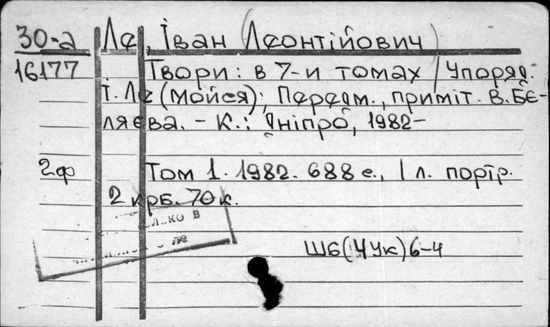 30-а Ле, Іван (Леонтійович)
16177 Твори: в 7-и томах / Упоряд.
І. Ле (Мойся); Передм., приміт. В. Бє-
ляєва. - К.: Дніпро, 1982-
2ф Том 1. 1982. 688 с., 1 л. портр.
2 крб. 70 к.
ШБ(4Ук)6-4